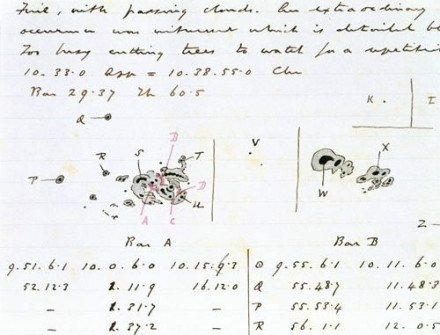 Fine, with passing clouds. An extraordinary
occurrence was witnessed which is detailed be
Too busy cutting trees to watch for a repetiti
10. 33.0 App = 10.38.55.0 Chr
Bar 29.37 Th 60.5
K . I
Q
B
V
X
R S T
P
D
W
A C U
Z
Bar A Bar B
9.51.6.1 10. 0.6.0 10.15. 9.3 O 9.55.6.1 10.11.6.0
52.12.3 1.11.9 16.12.0 Q 55.48.7 11.48.3
- 1.31.7 - P 55.53.4 11.53.1
- 1.37.2 - R 56.1.1 12. 0.5